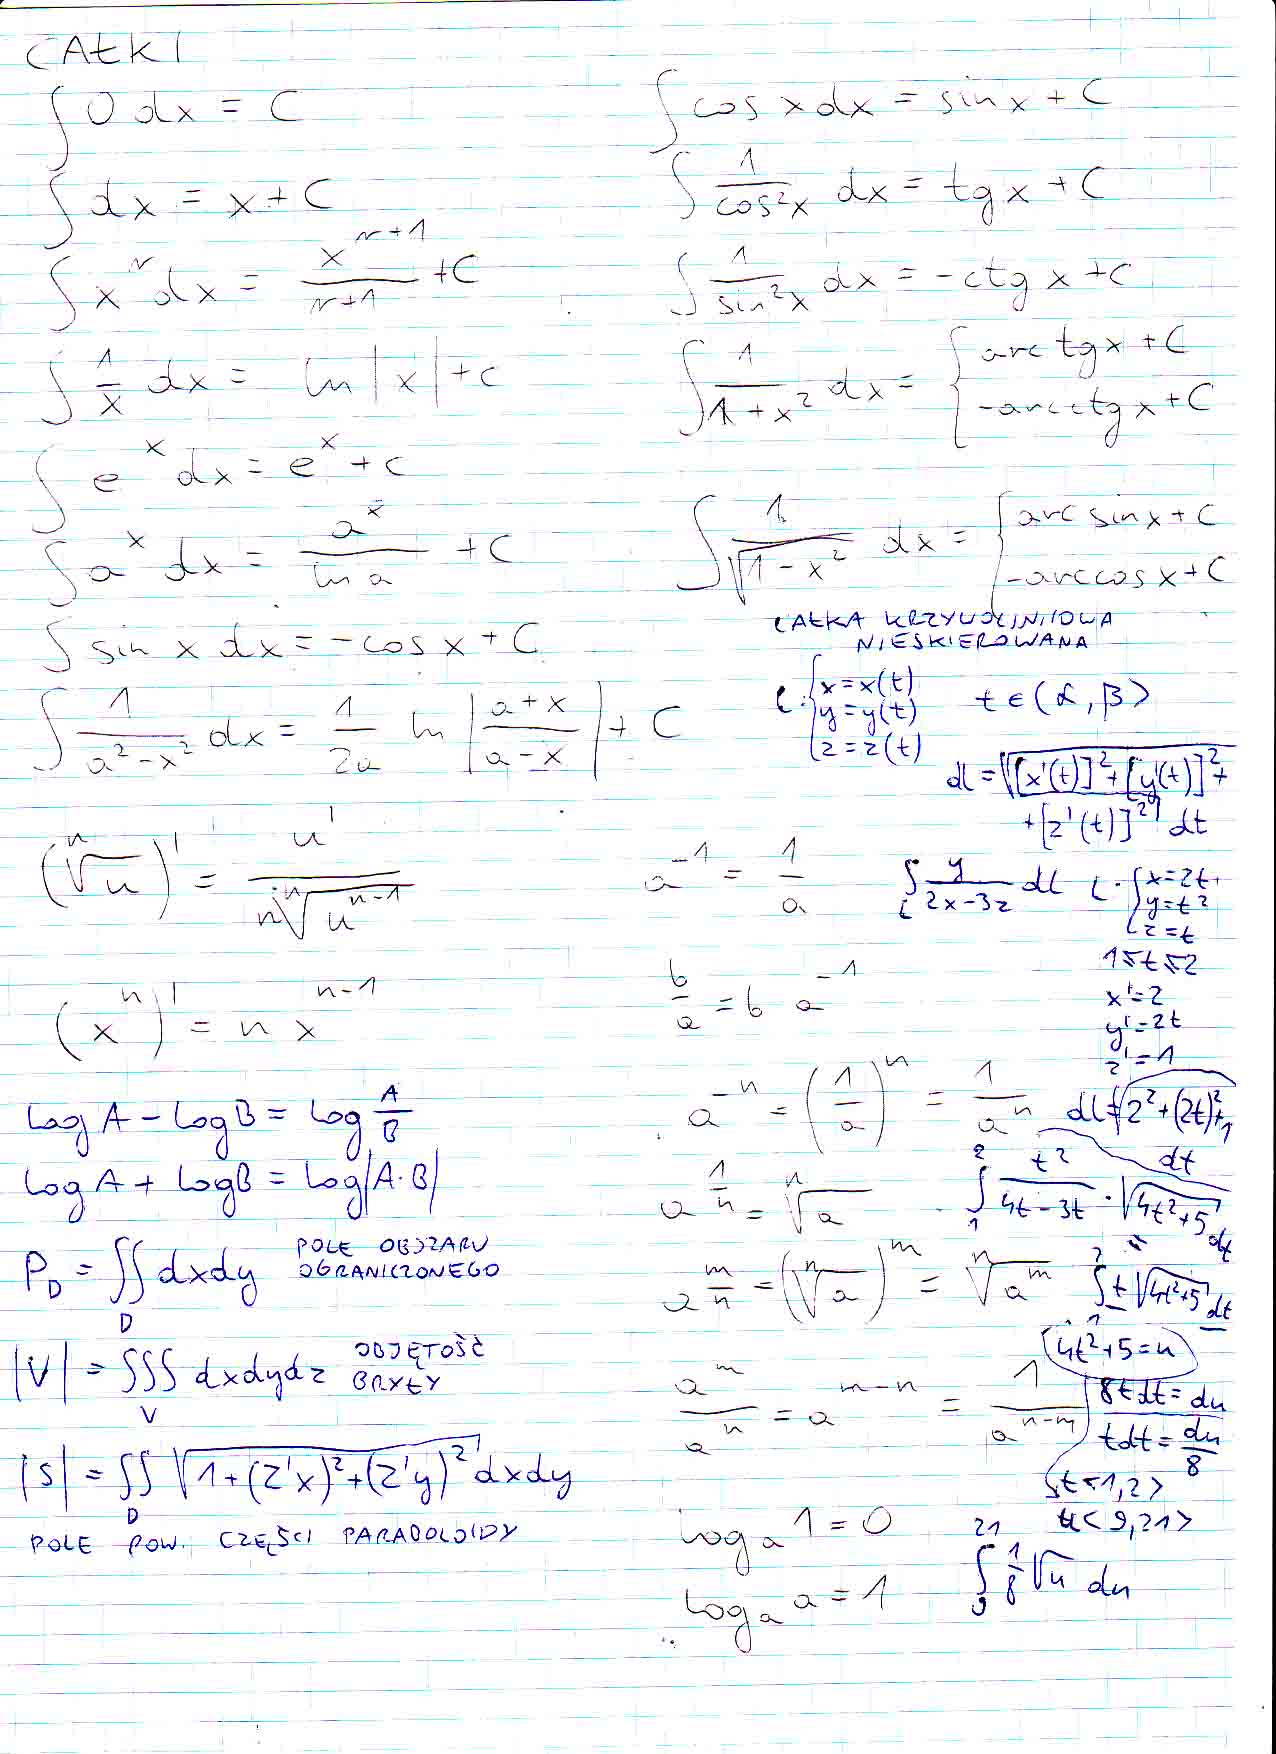 CAŁKI
∫ 0 dx = C
∫ dx = x + C
∫ xʳ dx = xʳ⁺¹/(r+1) + C
∫ 1/x dx = ln |x| + c
∫ eˣ dx = eˣ + c
∫ aˣ dx = aˣ/ln a + C
∫ sin x dx = -cos x + C
∫ 1/(a²-x²) dx = 1/2a ln |(a+x)/(a-x)| + C
(ⁿ√u)' = u'/(n ⁿ√uⁿ⁻¹)
(xⁿ)' = n xⁿ⁻¹
log A - log B = log A/B
log A + log B = log|A·B|
P_D = ∬_D dxdy POLE OBSZARU
OGRANICZONEGO
|V| = ∭_V dxdydz OBJĘTOŚĆ
BRYŁY
|S| = ∬_D √(1+(z'x)²+(z'y)²) dxdy
POLE POW. CZĘŚCI PARABOLOIDY
∫ cos x dx = sin x + C
∫ 1/cos²x dx = tg x + C
∫ 1/sin²x dx = -ctg x + C
∫ 1/(1+x²) dx = { arc tg x + C
-arc ctg x + C
∫ 1/√(1-x²) dx = { arc sin x + C
-arc cos x + C
CAŁKA KRZYWOLINIOWA
NIESKIEROWANA
L: { x = x(t)
y = y(t) t ∈ (α, β>
z = z(t)
dl = √([x'(t)]² + [y'(t)]² +
+ [z'(t)]²) dt
a⁻¹ = 1/a
b/a = b a⁻¹
a⁻ⁿ = (1/a)ⁿ = 1/aⁿ
a^(1/n) = ⁿ√a
a^(m/n) = (ⁿ√a)ᵐ = ⁿ√aᵐ
aᵐ/aⁿ = aᵐ⁻ⁿ = 1/aⁿ⁻ᵐ
log_a 1 = 0
log_a a = 1
∫_L y/(2x-3z) dl L: { x = 2t
y = t²
z = t
1≤t≤2
x' = 2
y' = 2t
z' = 1
dl = √(2²+(2t)²+1) dt
∫₁² t²/(4t-3t) · √(4t²+5) dt
=
∫₁² t √(4t²+5) dt
4t²+5 = u
8t dt = du
t dt = du/8
t<1,2>
u<9,21>
∫₉²¹ 1/8 √u du